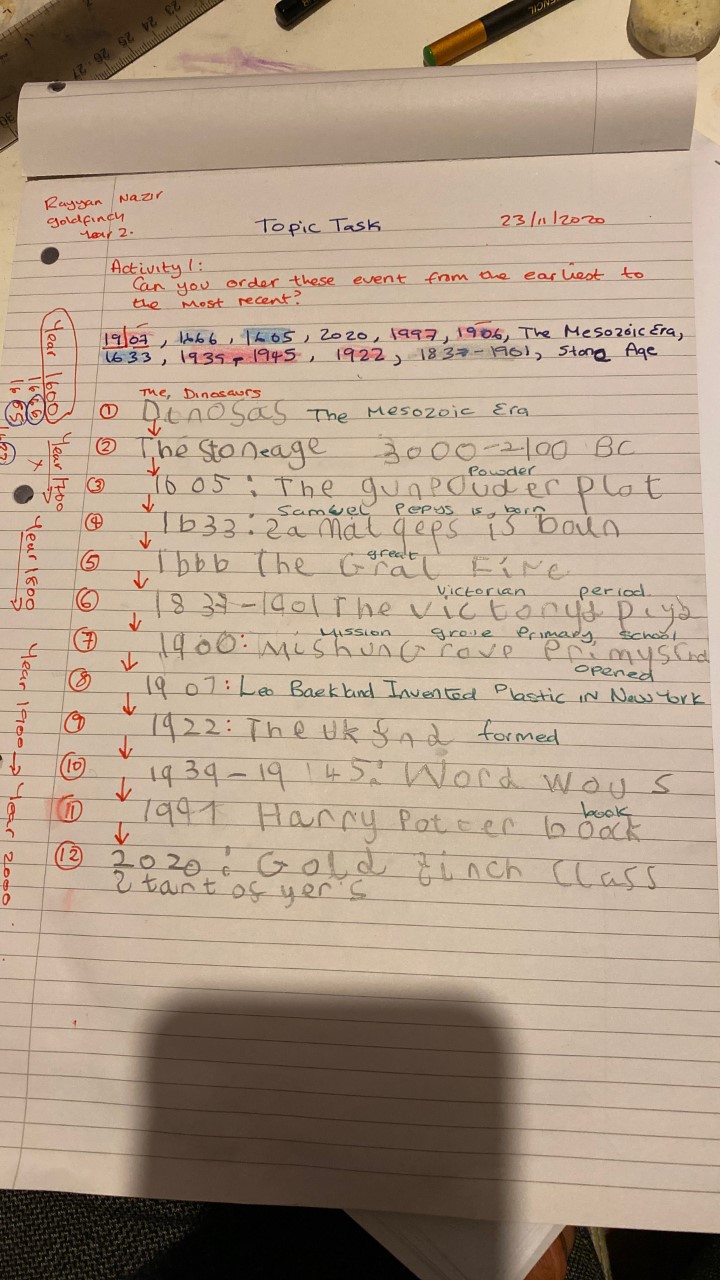 Rayyan Nazir
goldfinch
Year 2.
Topic Task
23/11/2020
Activity 1:
Can you order these event from the earliest to
the most recent?
1907, 1666, 1605, 2020, 1997, 1906, The Mesozoic Era,
1633, 1939-1945, 1922, 1837-1901, Stone Age
The, Dinosaurs
① Dinosas The Mesozoic Era
② The Stoneage 3000-2100 BC
Powder
③ 1605: The gunpouder plot
Samuel Pepys is born
④ 1633: is boun
great
⑤ 1666 The Grat Fire
Victorian period
⑥ 1837-1901 The
Mission grove Primary School
⑦ 1900: Mishun Grove
opened
⑧ 1907: Leo Baekland Invented Plastic in New York
⑨ 1922: The UK formed
⑩ 1939-1945: Word Wous
book
⑪ 1997 Harry Potter boock
⑫ 2020: Gold finch Class
Year 1600
1666
1605
Year 1700
Year 1800
Year 1900 → Year 2000